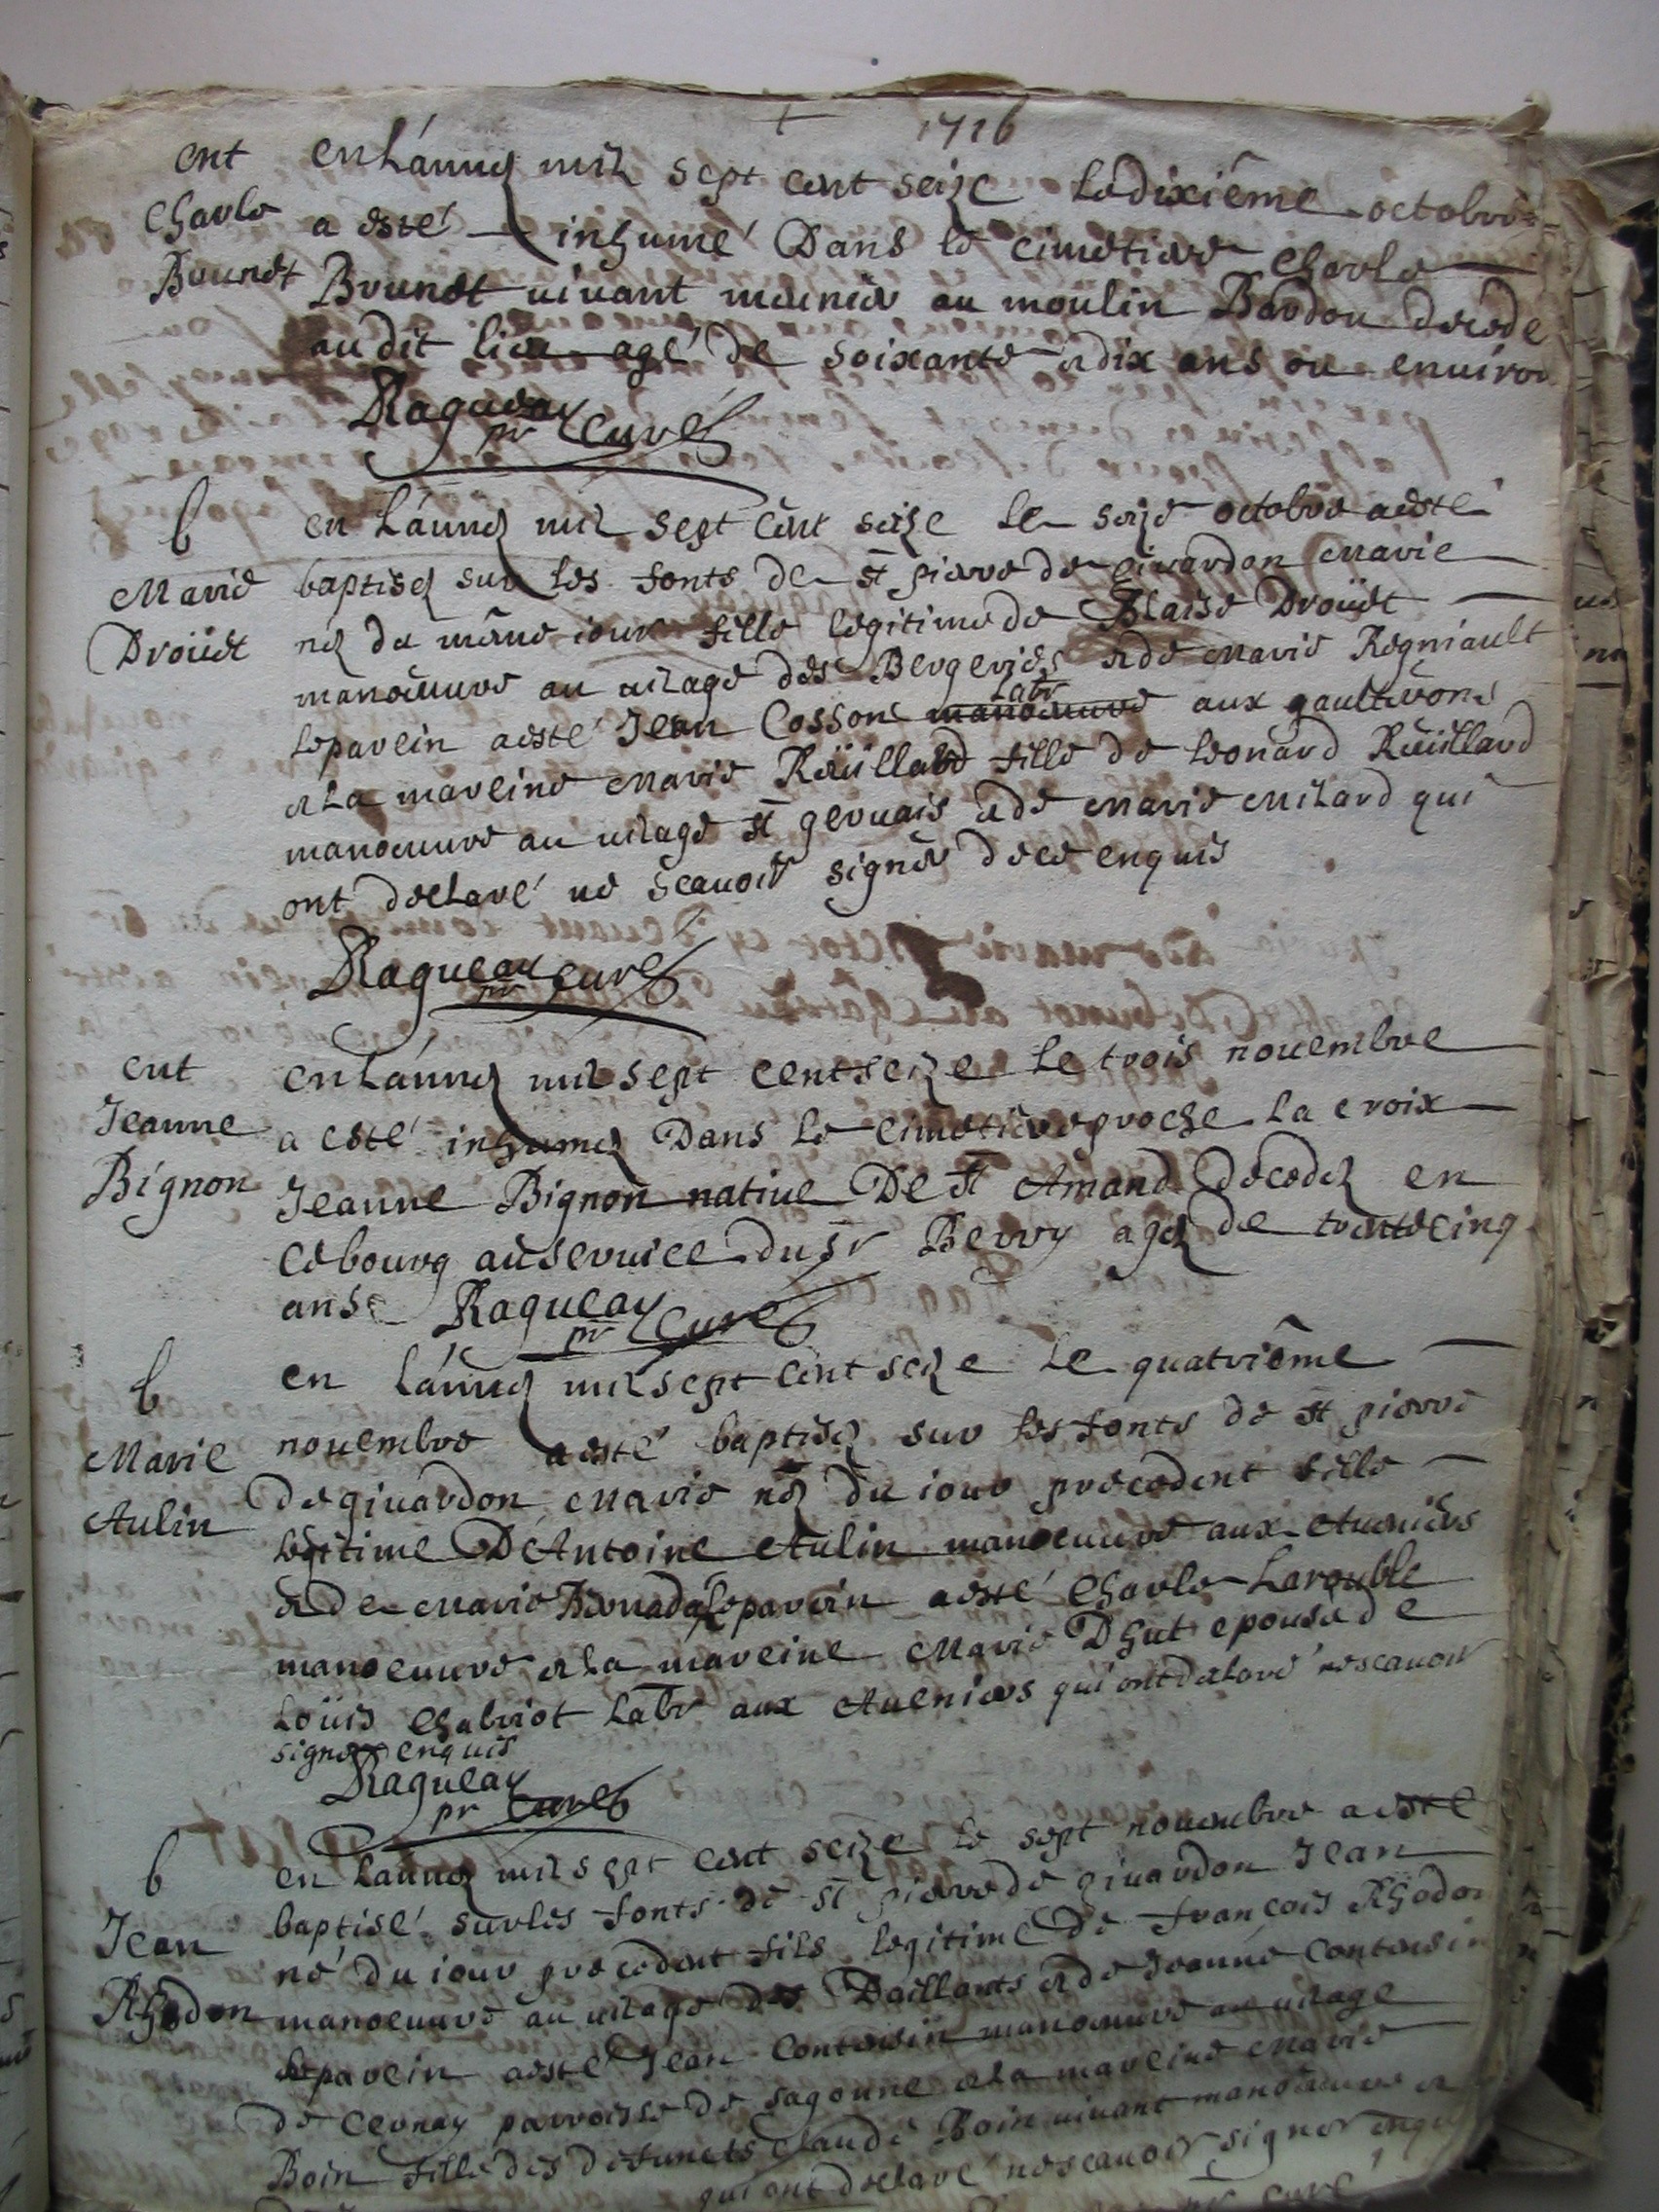 1716
ent
Charle
Brunet
en L'année mil sept cent seize le dixiême octobre
a esté inhumé Dans le cimetiere Charle
Brunet uiuant meunier au moulin Bardon decede
audit lieu agé de soixante et dix ans ou enuiron
Ragueau pr Curé
b
Marie
Droüet
en L'année mil sept cent seize le seize octobre a esté
baptisée sur les fonts de st pierre de giuardon Marie
née du même iour fille legitime de Blaise Droüet
manoeuure au uilage des Bergeries et de Marie Regniault
le parein a esté Jean Cosson manoeuure labr aux gaultrons
et la mareine Marie Rüillard fille de Leonard Rüillard
manoeuure au uilage st geruais et de Marie Milard qui
ont declaré ne scauoir signer de ce enquis
Ragueau pr Curé
ent
Jeanne
Bignon
en L'année mil sept cent seize le trois nouembre
a esté inhumée Dans le cimetiere proche la croix
Jeanne Bignon natiue De st Amand decedée en
ce bourg au seruice du sr Berry agée de trente cinq
ans Ragueau pr Curé
b
Marie
Aulin
en L'année mil sept cent seize le quatriême
nouembre a esté baptisée sur les fonts de st pierre
de giuardon Marie née du iour precedent fille
legitime D'Antoine Aulin manoeuure aux Aueniers
et de Marie le parein a esté Charle Larouble
manoeuure et la mareine Marie Dhut epouse de
Loüis Chabriot Labr aux Aueniers qui ont declaré ne scauoir
signer enquis
Ragueau
pr Curé
b
Jean
Rhodon
en L'année mil sept cent seize le sept nouembre a esté
baptisé sur les fonts de st pierre de giuardon Jean
né du iour precedent fils legitime de françois Rhodon
manoeuure au uilage des Daillants et de Jeanne Contoisin
le parein a esté Jean Contoisin manoeuure au uilage
de Cernay parroisse de sagonne et la mareine Marie
Boin fille des defuncts Claude Boin uiuant manoeuure et
qui ont declaré ne scauoir signer enquis
pr Curé